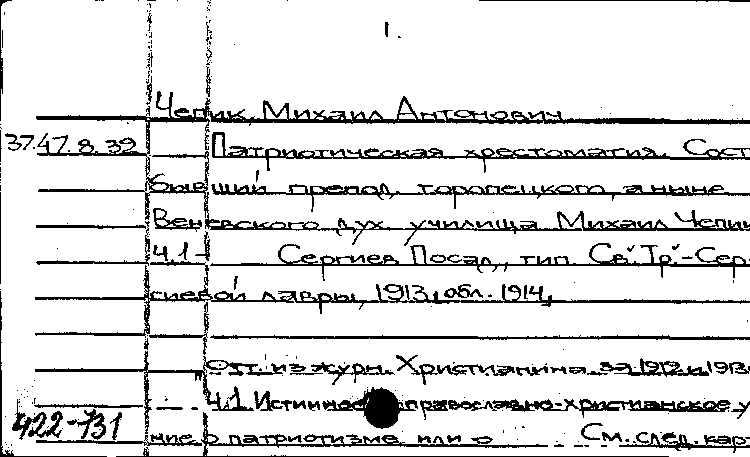 1.
Чепик, Михаил Антонович
37.47.8.39 Патриотическая хрестоматия. Сост.
бывший препод. торопецкого, а ныне
Веневского дух. училища Михаил Чепик
Ч.1- Сергиев Посад, тип. Св. Тр.-Сер-
гиевой лавры, 1913, обл. 1914,
Отт. из журн. Христианина за 1912 и 1913
Ч.1 Истинное православно-христианское у
422-731
ние о патриотизме или о См. след. кар